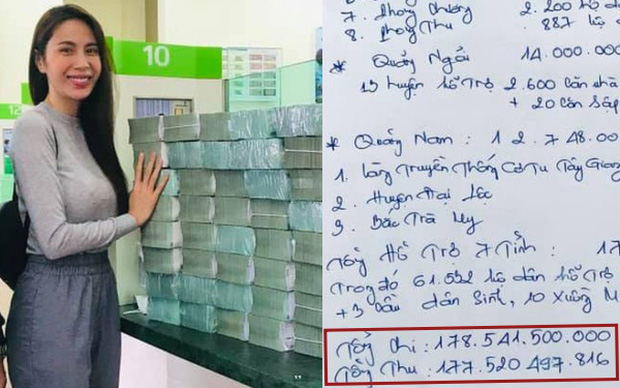 10
12
7. Phong Chương 2. 200 hộ d
8. Phong Thu 887 hộ d
* Quảng Ngãi 14.000.000
13 huyện hỗ trợ 2.600 căn nhà
+ 20 căn sập
* Quảng Nam : 12.748.00
1. Làng Truyền Thống Cơ Tu Tây Giang
2. Huyện Đại Lộc
3. Bắc Trà My
Tổng Hỗ Trợ 7 Tỉnh : 17
Trong đó 61.532 hộ dân hỗ Trợ
+ 3 cầu dân Sinh, 10 Xuồng M
Tổng Chi : 178.541.500.000
Tổng Thu : 177.520.497.816